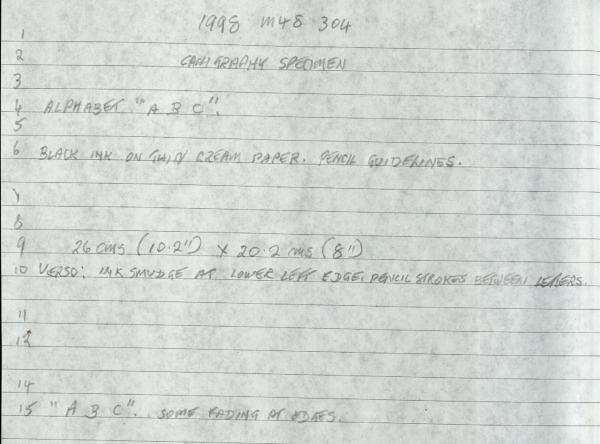 1998 M48 304
1
2 CALLIGRAPHY SPECIMEN
3
4 ALPHABET "A B C".
5
6 BLACK INK ON THIN CREAM PAPER. PENCIL GUIDELINES.
7
8
9 26 CMS (10.2") X 20.2 MS (8")
10 VERSO: INK SMUDGE AT LOWER LEFT EDGE. PENCIL STROKES BETWEEN LETTERS.
11
12
14
15 "A B C". SOME FADING AT EDGES.